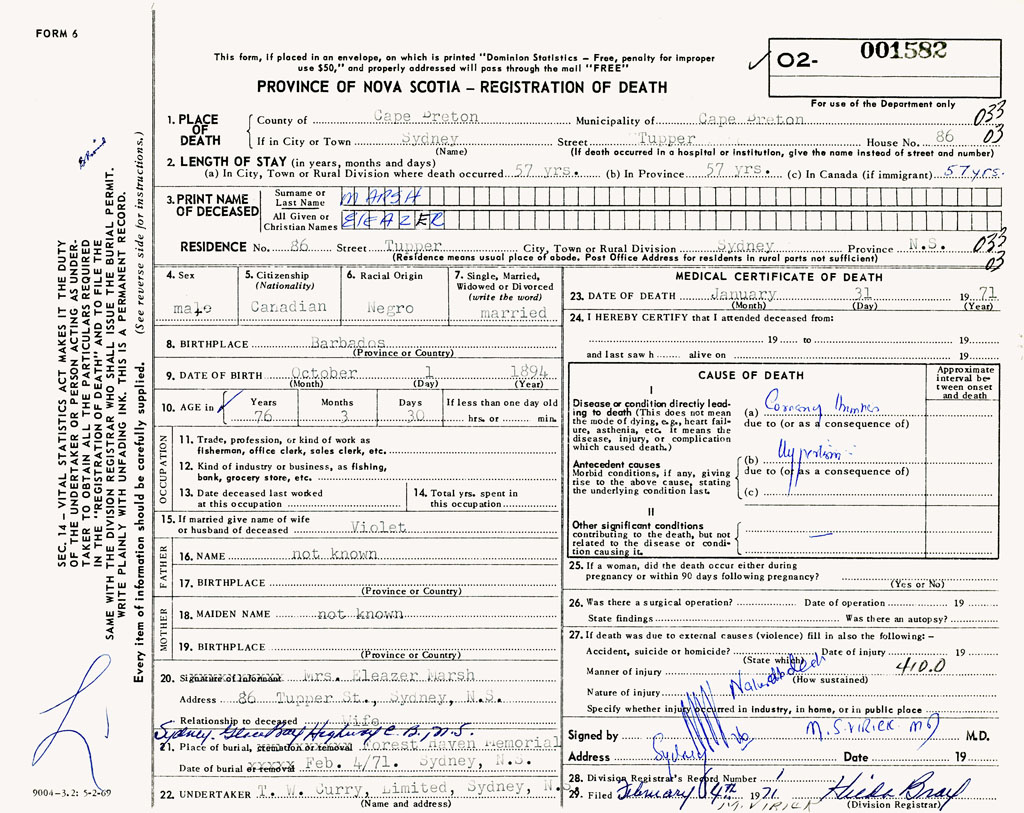 FORM 6
This form, if placed in an envelope, on which is printed "Dominion Statistics – Free, penalty for improper
use $50," and properly addressed will pass through the mail "FREE"
PROVINCE OF NOVA SCOTIA – REGISTRATION OF DEATH
02- 001582
For use of the Department only
SEC. 14 – VITAL STATISTICS ACT MAKES IT THE DUTY
OF THE UNDERTAKER OR PERSON ACTING AS UNDER-
TAKER TO OBTAIN ALL THE PARTICULARS REQUIRED
IN THE "REGISTRATION OF DEATH" AND TO FILE THE
SAME WITH THE DIVISION REGISTRAR WHO SHALL ISSUE THE BURIAL PERMIT.
WRITE PLAINLY WITH UNFADING INK. THIS IS A PERMANENT RECORD.
Every item of information should be carefully supplied. (See reverse side for instructions.)
1. PLACE OF DEATH
County of Cape Breton Municipality of Cape Breton 033
If in City or Town Sydney Street Tupper House No. 86 03
(Name) (If death occurred in a hospital or institution, give the name instead of street and number)
2. LENGTH OF STAY (in years, months and days)
(a) In City, Town or Rural Division where death occurred 57 yrs. (b) In Province 57 yrs. (c) In Canada (if immigrant) 57 yrs.
3. PRINT NAME OF DECEASED
Surname or Last Name MARSH
All Given or Christian Names ELEAZER
RESIDENCE No. 86 Street Tupper City, Town or Rural Division Sydney Province N.S. 033
(Residence means usual place of abode. Post Office Address for residents in rural parts not sufficient) 03
4. Sex
male
5. Citizenship
(Nationality)
Canadian
6. Racial Origin
Negro
7. Single, Married,
Widowed or Divorced
(write the word)
married
8. BIRTHPLACE Barbados
(Province or Country)
9. DATE OF BIRTH October 1 1894
(Month) (Day) (Year)
10. AGE in Years Months Days If less than one day old
76 3 30 hrs. or min.
OCCUPATION
11. Trade, profession, or kind of work as
fisherman, office clerk, sales clerk, etc.
12. Kind of industry or business, as fishing,
bank, grocery store, etc.
13. Date deceased last worked
at this occupation
14. Total yrs. spent in
this occupation
15. If married give name of wife
or husband of deceased Violet
FATHER
16. NAME not known
17. BIRTHPLACE
(Province or Country)
MOTHER
18. MAIDEN NAME not known
19. BIRTHPLACE
(Province or Country)
20. Signature of informant Mrs. Eleazer Marsh
Address 86 Tupper St., Sydney, N.S.
Relationship to deceased Wife
Sydney, Glace Bay Highway C.B., N.S.
21. Place of burial, cremation or removal Forest Haven Memorial
Date of burial or removal Feb. 4/71. Sydney, N.S.
22. UNDERTAKER T. W. Curry, Limited, Sydney, N.S.
(Name and address)
9004-3.2: 5-2-69
MEDICAL CERTIFICATE OF DEATH
23. DATE OF DEATH January 31 1971
(Month) (Day) (Year)
24. I HEREBY CERTIFY that I attended deceased from:
19 to 19
and last saw h alive on 19
CAUSE OF DEATH
Approximate
interval be-
tween onset
and death
I
Disease or condition directly lead-
ing to death (This does not mean
the mode of dying, e.g., heart fail-
ure, asthenia, etc. It means the
disease, injury, or complication
which caused death.)
(a) Coronary
due to (or as a consequence of)
Antecedent causes
Morbid conditions, if any, giving
rise to the above cause, stating
the underlying condition last.
(b)
due to (or as a consequence of)
(c)
II
Other significant conditions
contributing to the death, but not
related to the disease or condi-
tion causing it.
25. If a woman, did the death occur either during
pregnancy or within 90 days following pregnancy?
(Yes or No)
26. Was there a surgical operation? Date of operation 19
State findings Was there an autopsy?
27. If death was due to external causes (violence) fill in also the following: –
Accident, suicide or homicide? Date of injury 19
(State which)
Manner of injury 410.0
(How sustained)
Nature of injury Natural death
Specify whether injury occurred in industry, in home, or in public place
Signed by M. S. VIRICK MD M.D.
Address Sydney Date 19
28. Division Registrar's Record Number 1
29. Filed February 4th 1971 Hilda Bray
M. VIRICK (Division Registrar)